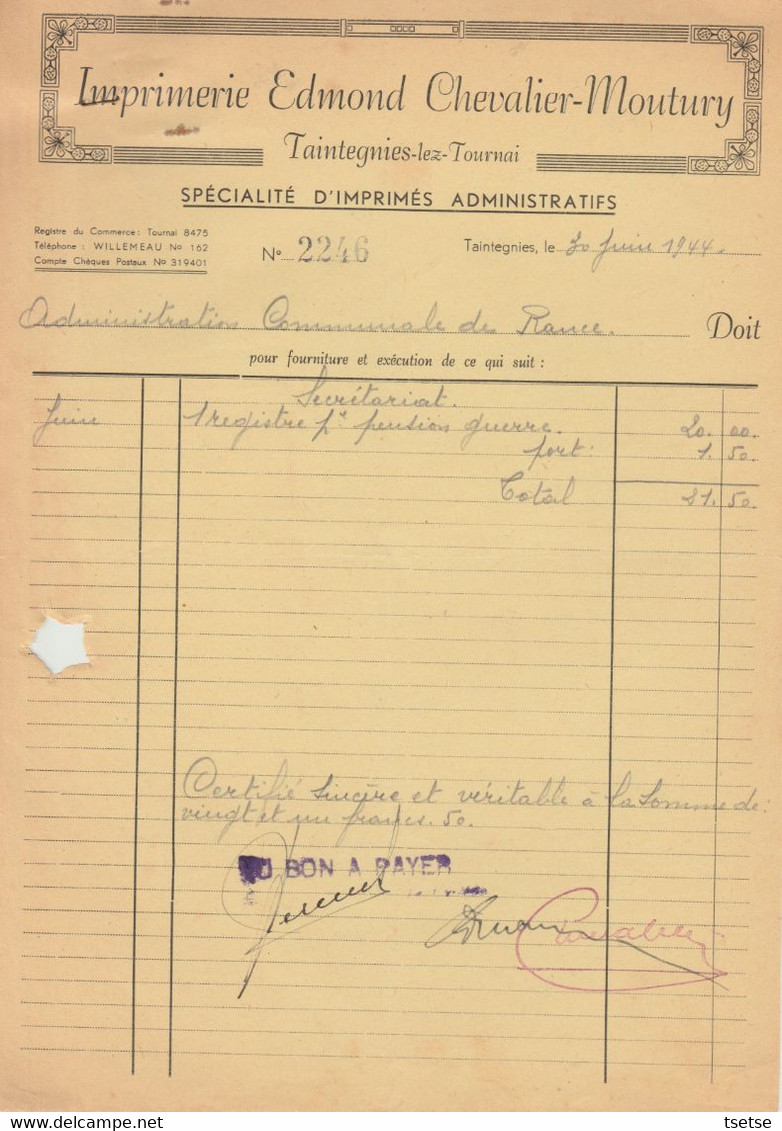 Imprimerie Edmond Chevalier-Moutury
Taintegnies-lez-Tournai
SPÉCIALITÉ D'IMPRIMÉS ADMINISTRATIFS
Registre du Commerce: Tournai 8475
Téléphone: WILLEMEAU No 162
Compte Chèques Postaux No 319401
No 2246
Taintegnies, le 30 Juin 1944.
Administration Communale de Rance. Doit
pour fourniture et exécution de ce qui suit:
Secrétariat.
Juin 1 registre pr pension guerre. 20.00
port: 1.50
Total 21.50
Certifié sincère et véritable à la somme de:
vingt et un francs. 50.
VU BON A PAYER
tsetse